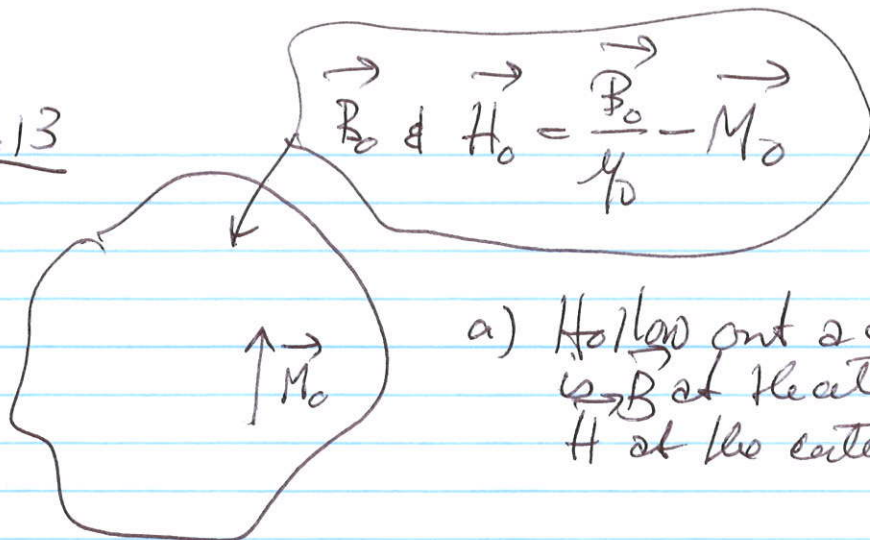 .13
B₀ & H₀ = B₀/μ₀ − M₀
M₀
a) Hollow out a
is B at the
H at the